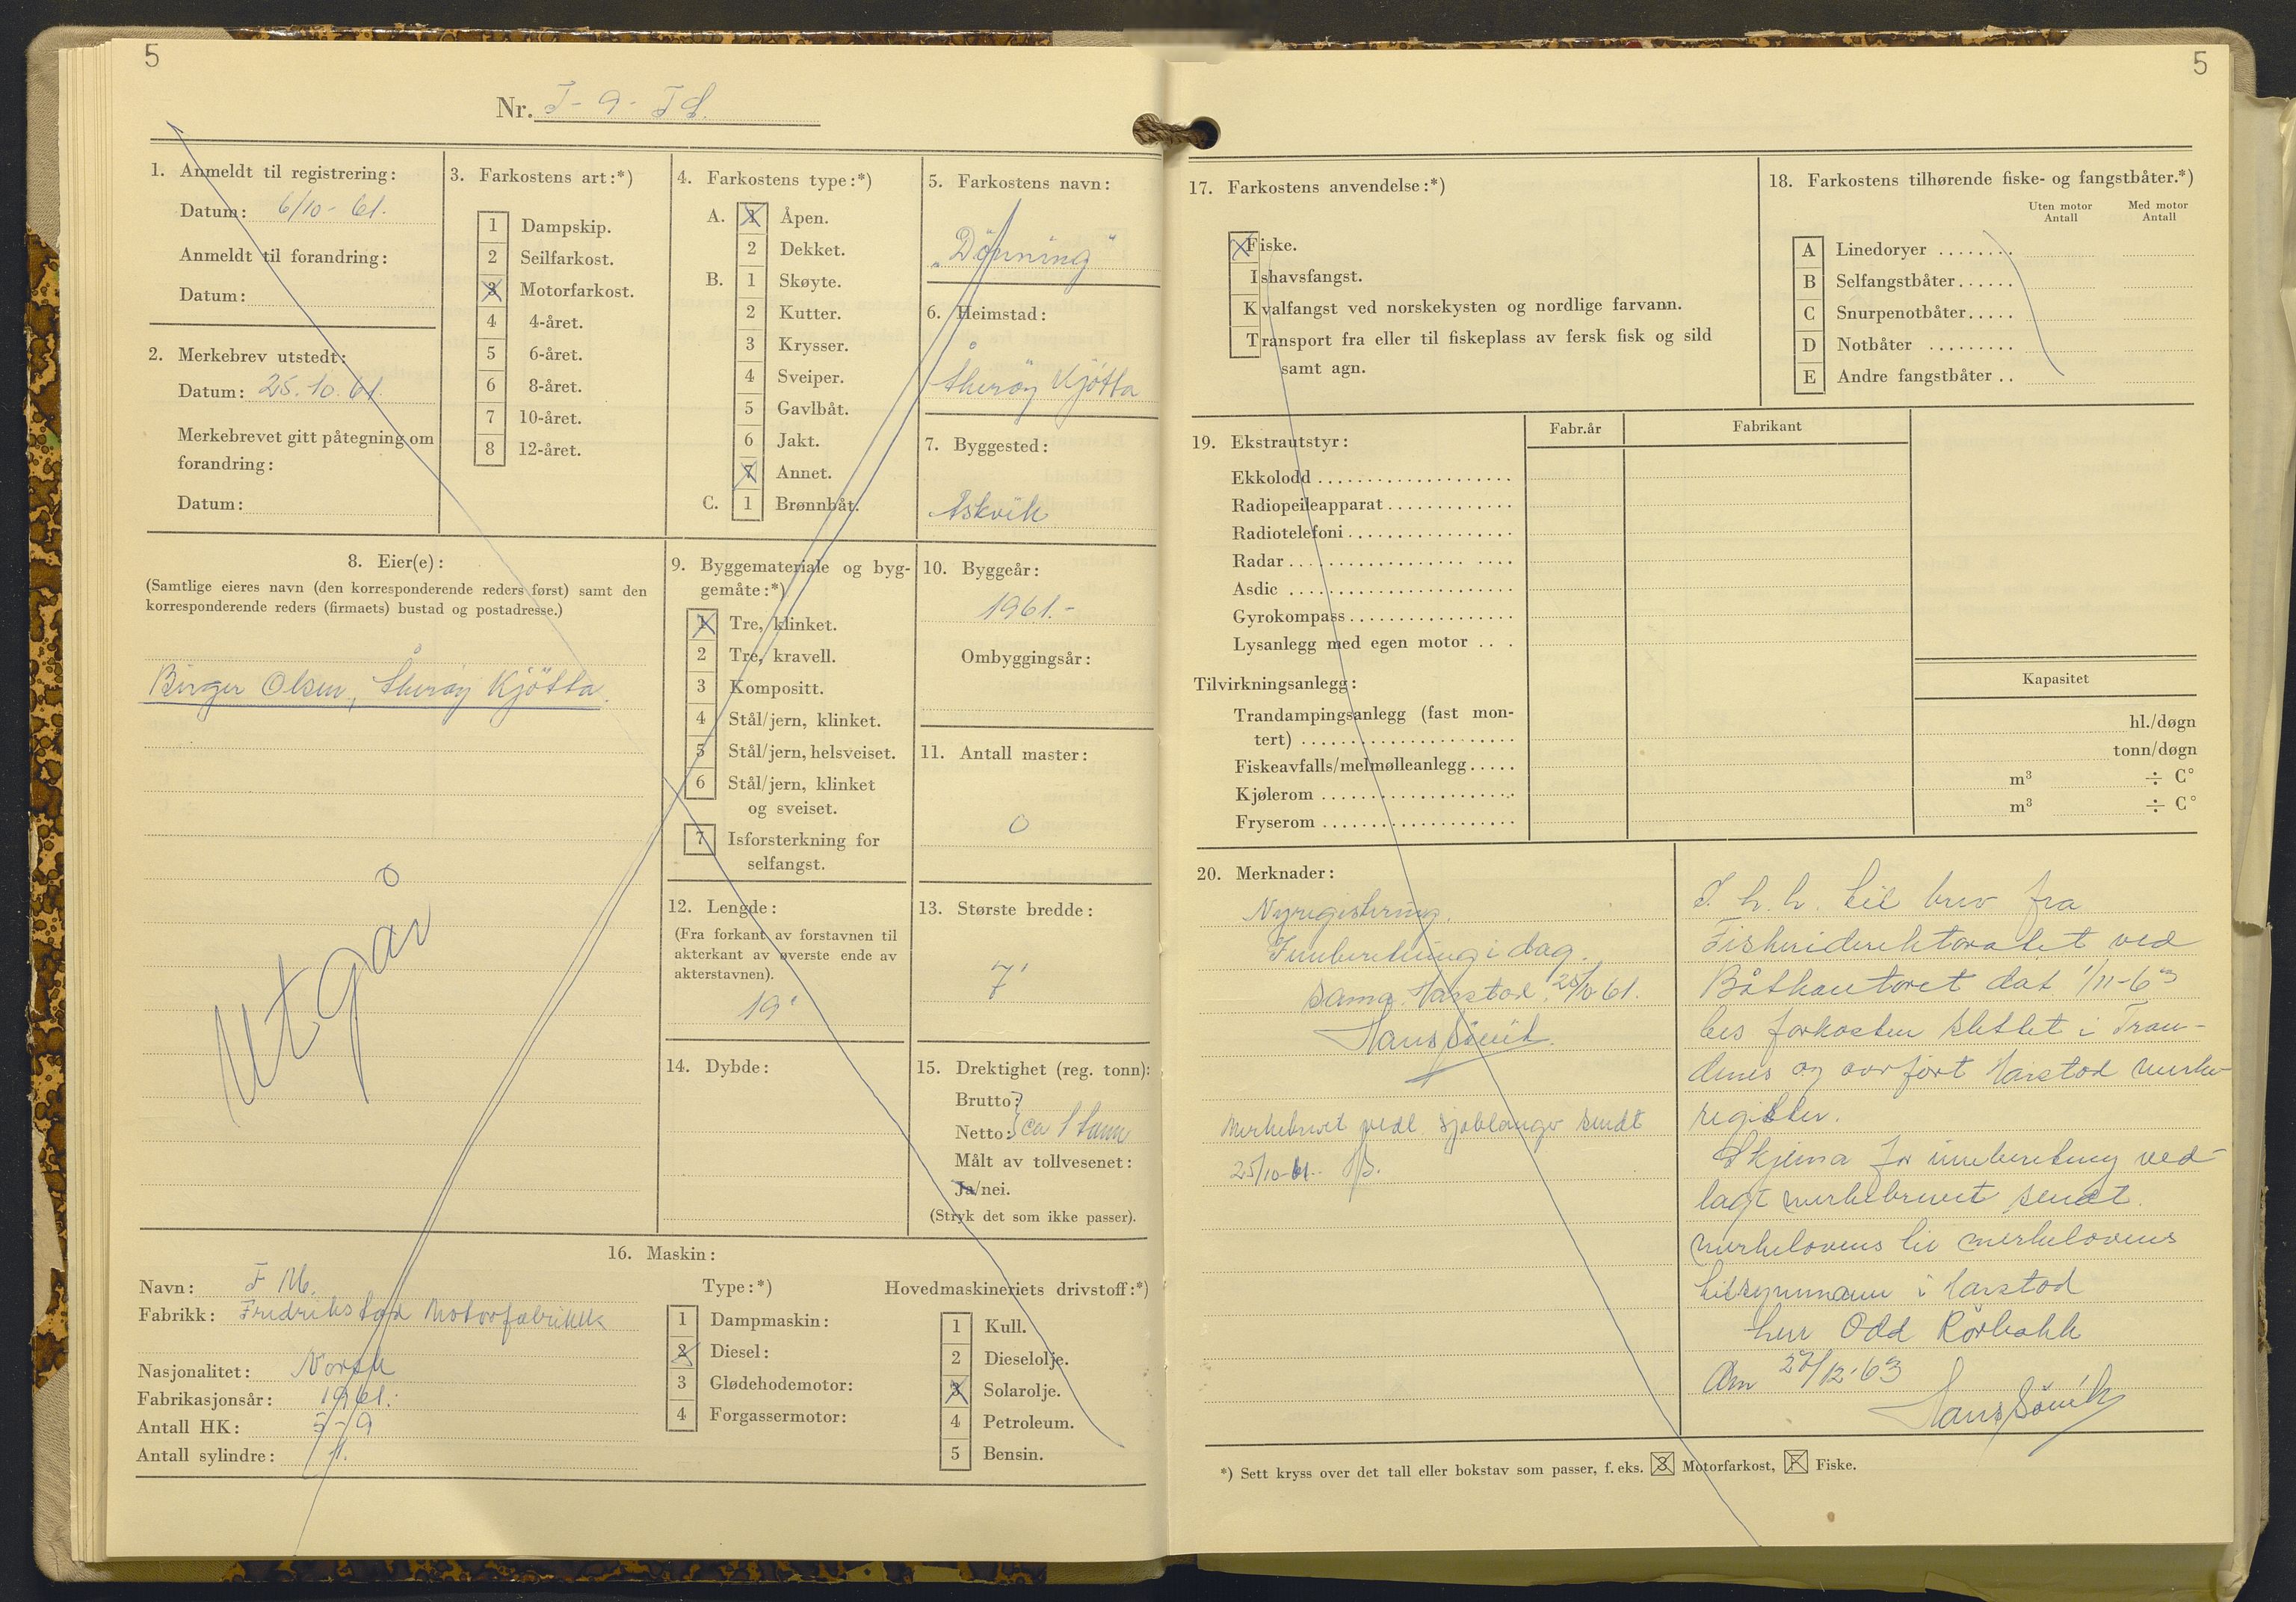 5
Nr. T-9-Td.
1. Anmeldt til registrering:
Datum: 6/10-61.
Anmeldt til forandring:
Datum:
2. Merkebrev utstedt:
Datum: 25.10.61.
Merkebrevet gitt påtegning om
forandring:
Datum:
3. Farkostens art:*)
1 Dampskip.
2 Seilfarkost.
3 Motorfarkost.
4 4-året.
5 6-året.
6 8-året.
7 10-året.
8 12-året.
4. Farkostens type:*)
A. 1 Åpen.
2 Dekket.
B. 1 Skøyte.
2 Kutter.
3 Krysser.
4 Sveiper.
5 Gavlbåt.
6 Jakt.
7 Annet.
C. 1 Brønnbåt.
5. Farkostens navn:
„Dönning"
6. Heimstad:
Åkeröy Kjötta
7. Byggested:
Askvik
8. Eier(e):
(Samtlige eieres navn (den korresponderende reders først) samt den
korresponderende reders (firmaets) bustad og postadresse.)
Birger Olsen, Åkeröy Kjötta.
Utgår
9. Byggemateriale og byg-
gemåte:*)
1 Tre, klinket.
2 Tre, kravell.
3 Kompositt.
4 Stål/jern, klinket.
5 Stål/jern, helsveiset.
6 Stål/jern, klinket
og sveiset.
7 Isforsterkning for
selfangst.
10. Byggeår:
1961.-
Ombyggingsår:
11. Antall master:
0
12. Lengde:
(Fra forkant av forstavnen til
akterkant av øverste ende av
akterstavnen).
19'
13. Største bredde:
7'
14. Dybde:
15. Drektighet (reg. tonn):
Brutto:
Netto: ca 1 tonn
Målt av tollvesenet:
Ja/nei.
(Stryk det som ikke passer).
16. Maskin:
Navn: F M.
Fabrikk: Fredrikstad Motorfabrikk
Nasjonalitet: Norsk
Fabrikasjonsår: 1961.
Antall HK: 3-9
Antall sylindre: 1.
Type:*)
1 Dampmaskin:
2 Diesel:
3 Glødehodemotor:
4 Forgassermotor:
Hovedmaskineriets drivstoff:*)
1 Kull.
2 Dieselolje.
3 Solarolje.
4 Petroleum.
5 Bensin.
5
17. Farkostens anvendelse:*)
Fiske.
Ishavsfangst.
Kvalfangst ved norskekysten og nordlige farvann.
Transport fra eller til fiskeplass av fersk fisk og sild
samt agn.
18. Farkostens tilhørende fiske- og fangstbåter.*)
Uten motor Antall
Med motor Antall
A Linedoryer ........
B Selfangstbåter......
C Snurpenotbåter.....
D Notbåter .........
E Andre fangstbåter ..
19. Ekstrautstyr:
Fabr.år
Fabrikant
Ekkolodd
Radiopeileapparat
Radiotelefoni
Radar
Asdic
Gyrokompass
Lysanlegg med egen motor ...
Tilvirkningsanlegg:
Kapasitet
Trandampingsanlegg (fast mon-
tert) hl./døgn
Fiskeavfalls/melmølleanlegg..... tonn/døgn
Kjølerom m³ ÷ C°
Fryserom m³ ÷ C°
20. Merknader:
Nyregistering.
Innberetning i dag.
Sama Harstad 25/10 61.
Hans Sövik.
Merkebrevet vedl. sjablanger sendt
25/10-61. HS.
I h. h. til brev fra
Fiskeridirektoratet ved
Båtkontoret dat 1/11-63
bes farkosten slettet i Tron-
denes og overfört Harstad merke-
register.
Skjema for innberetning ved-
lagt merkebrevet sendt
merkelovens til merkelovens
tilsynsmann i Harstad
herr Odd Rörbakk
Am 27/12-63
Hans Sövik
*) Sett kryss over det tall eller bokstav som passer, f. eks. 3 Motorfarkost, F Fiske.